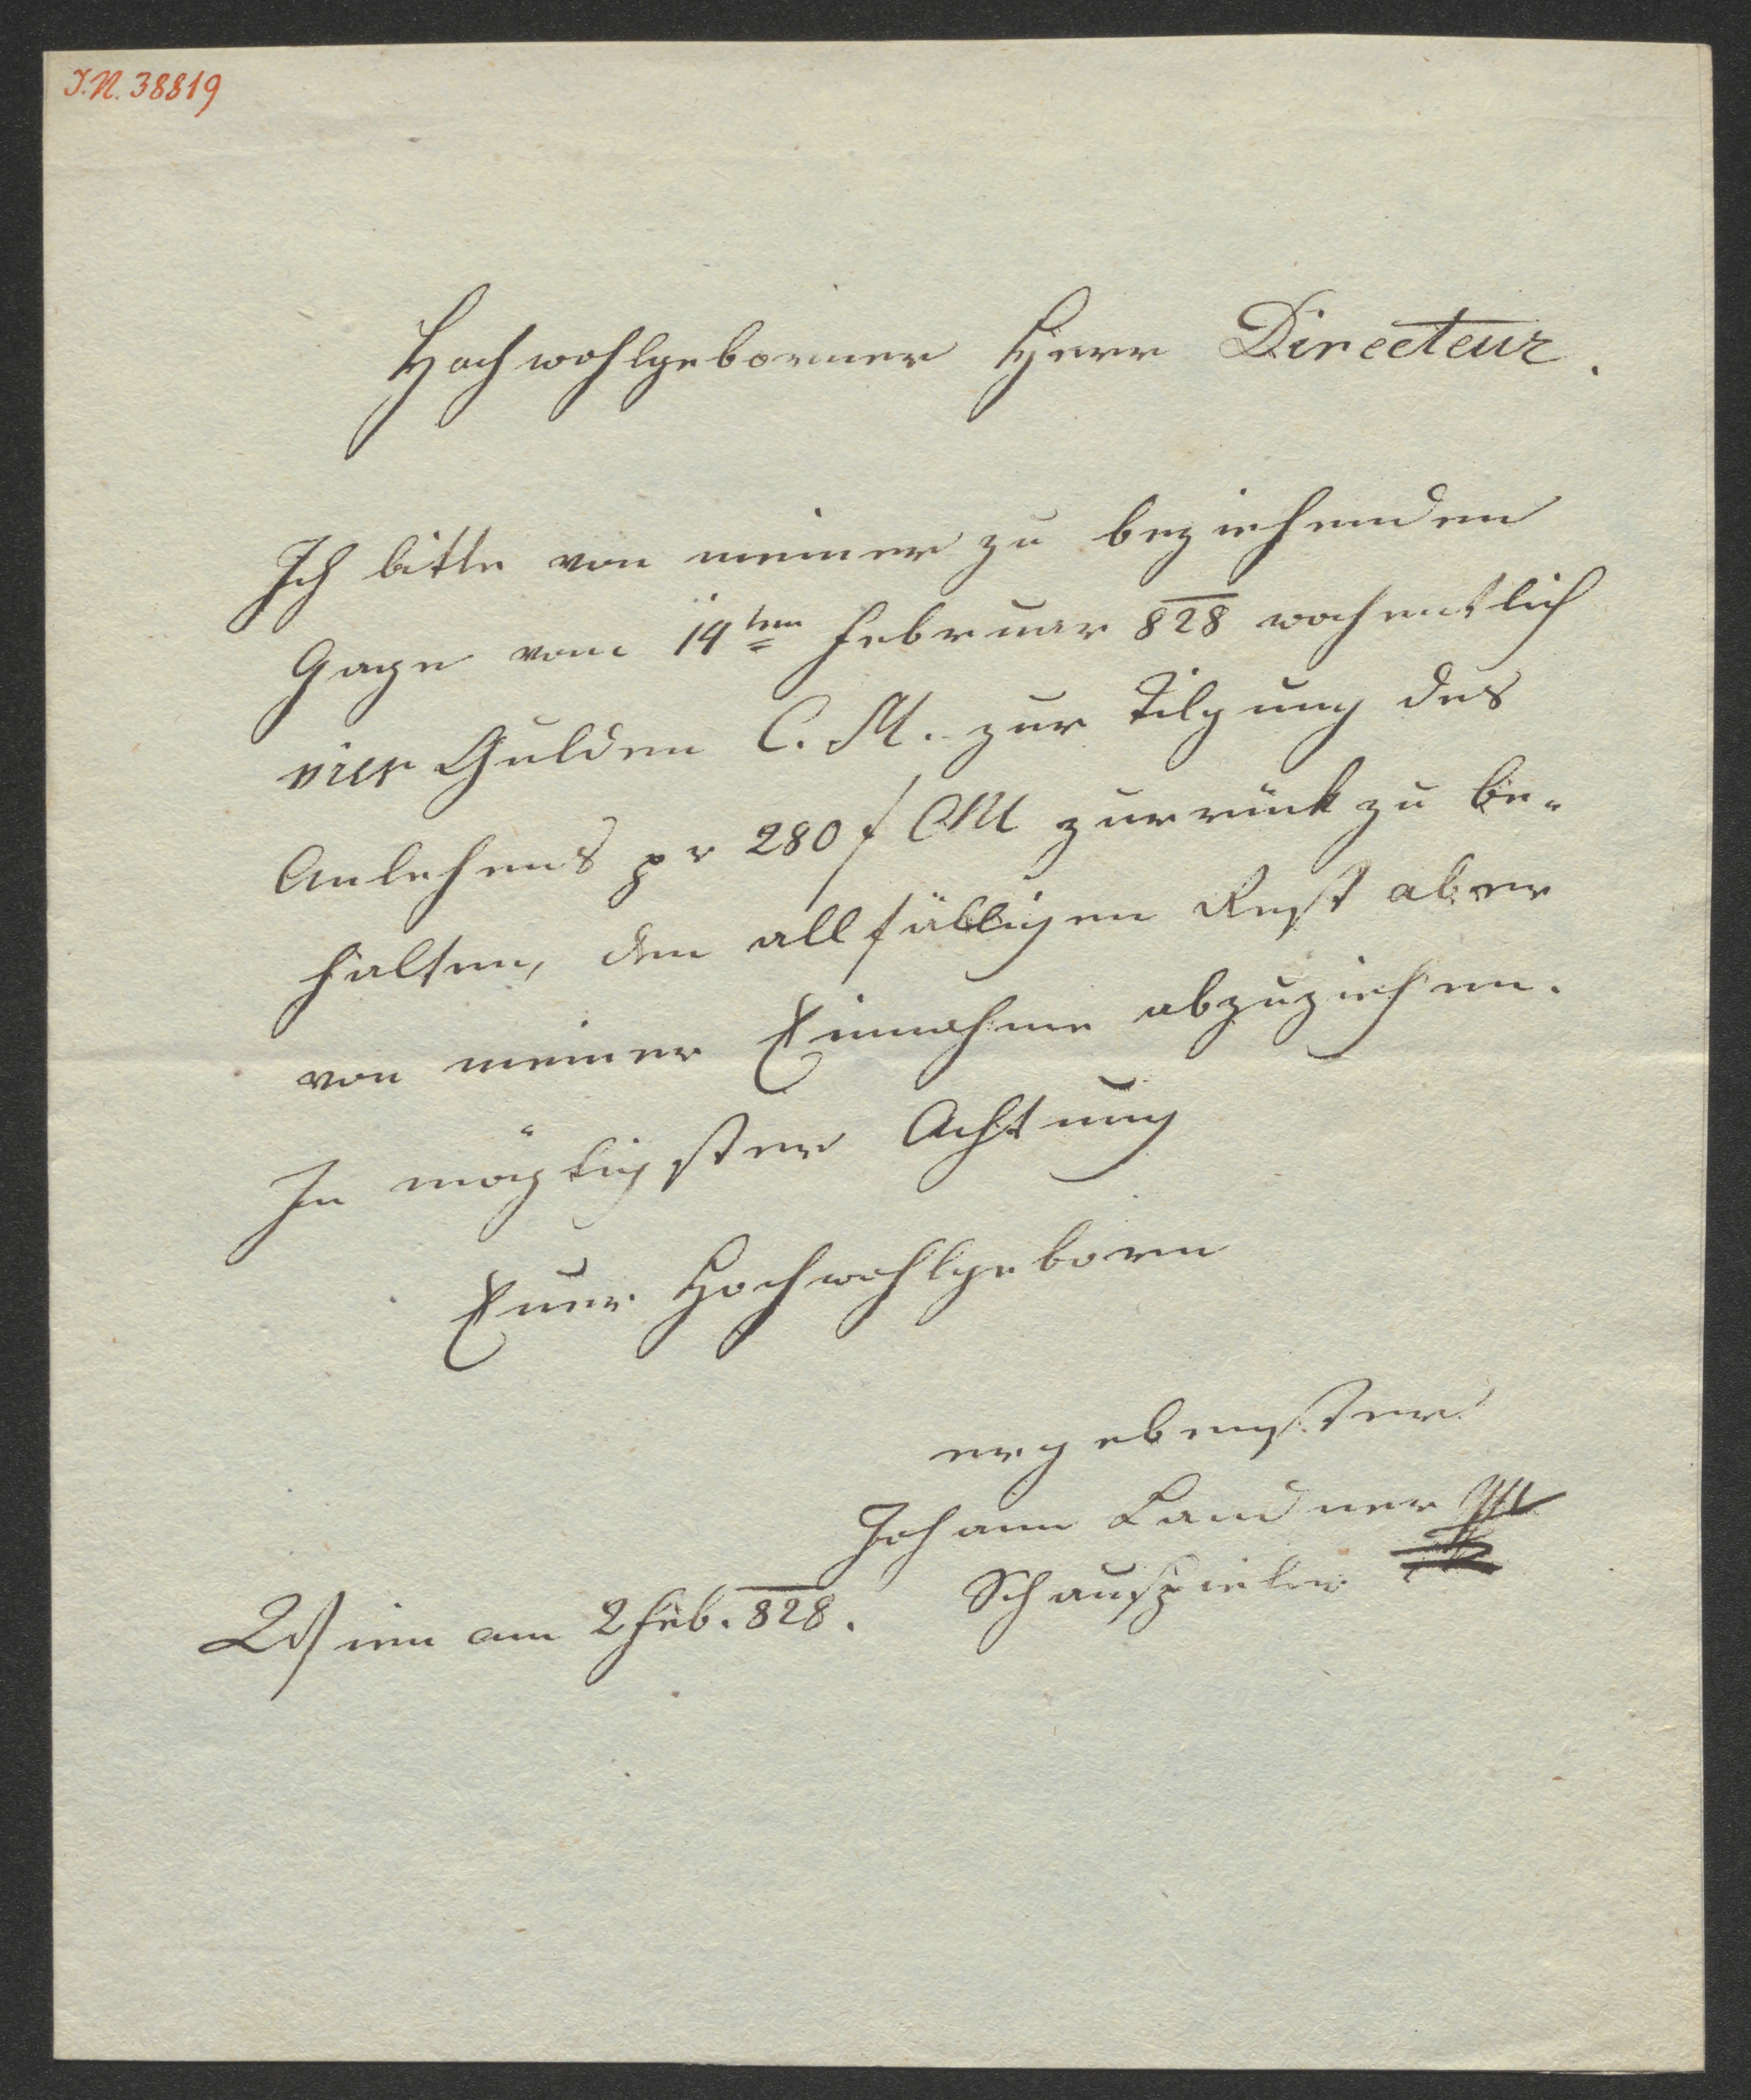 I.N. 38819
Hochwohlgeborner Herr Directeur.
Ich bitte von meiner zu beziehenden
Gage vom 14ten Februar 828 wochentlich
vier Gulden C. M. zur Tilgung des
Anlehens pr 280 f CM zurrück zu be-
halten, den allfälligen Rest aber
von meiner Einnahme abzuziehen.
In mögligster Achtung
Euer Hochwohlgeborn
ergebenster
Johann Landner
Schauspieler
Wien am 2 Feb. 828.